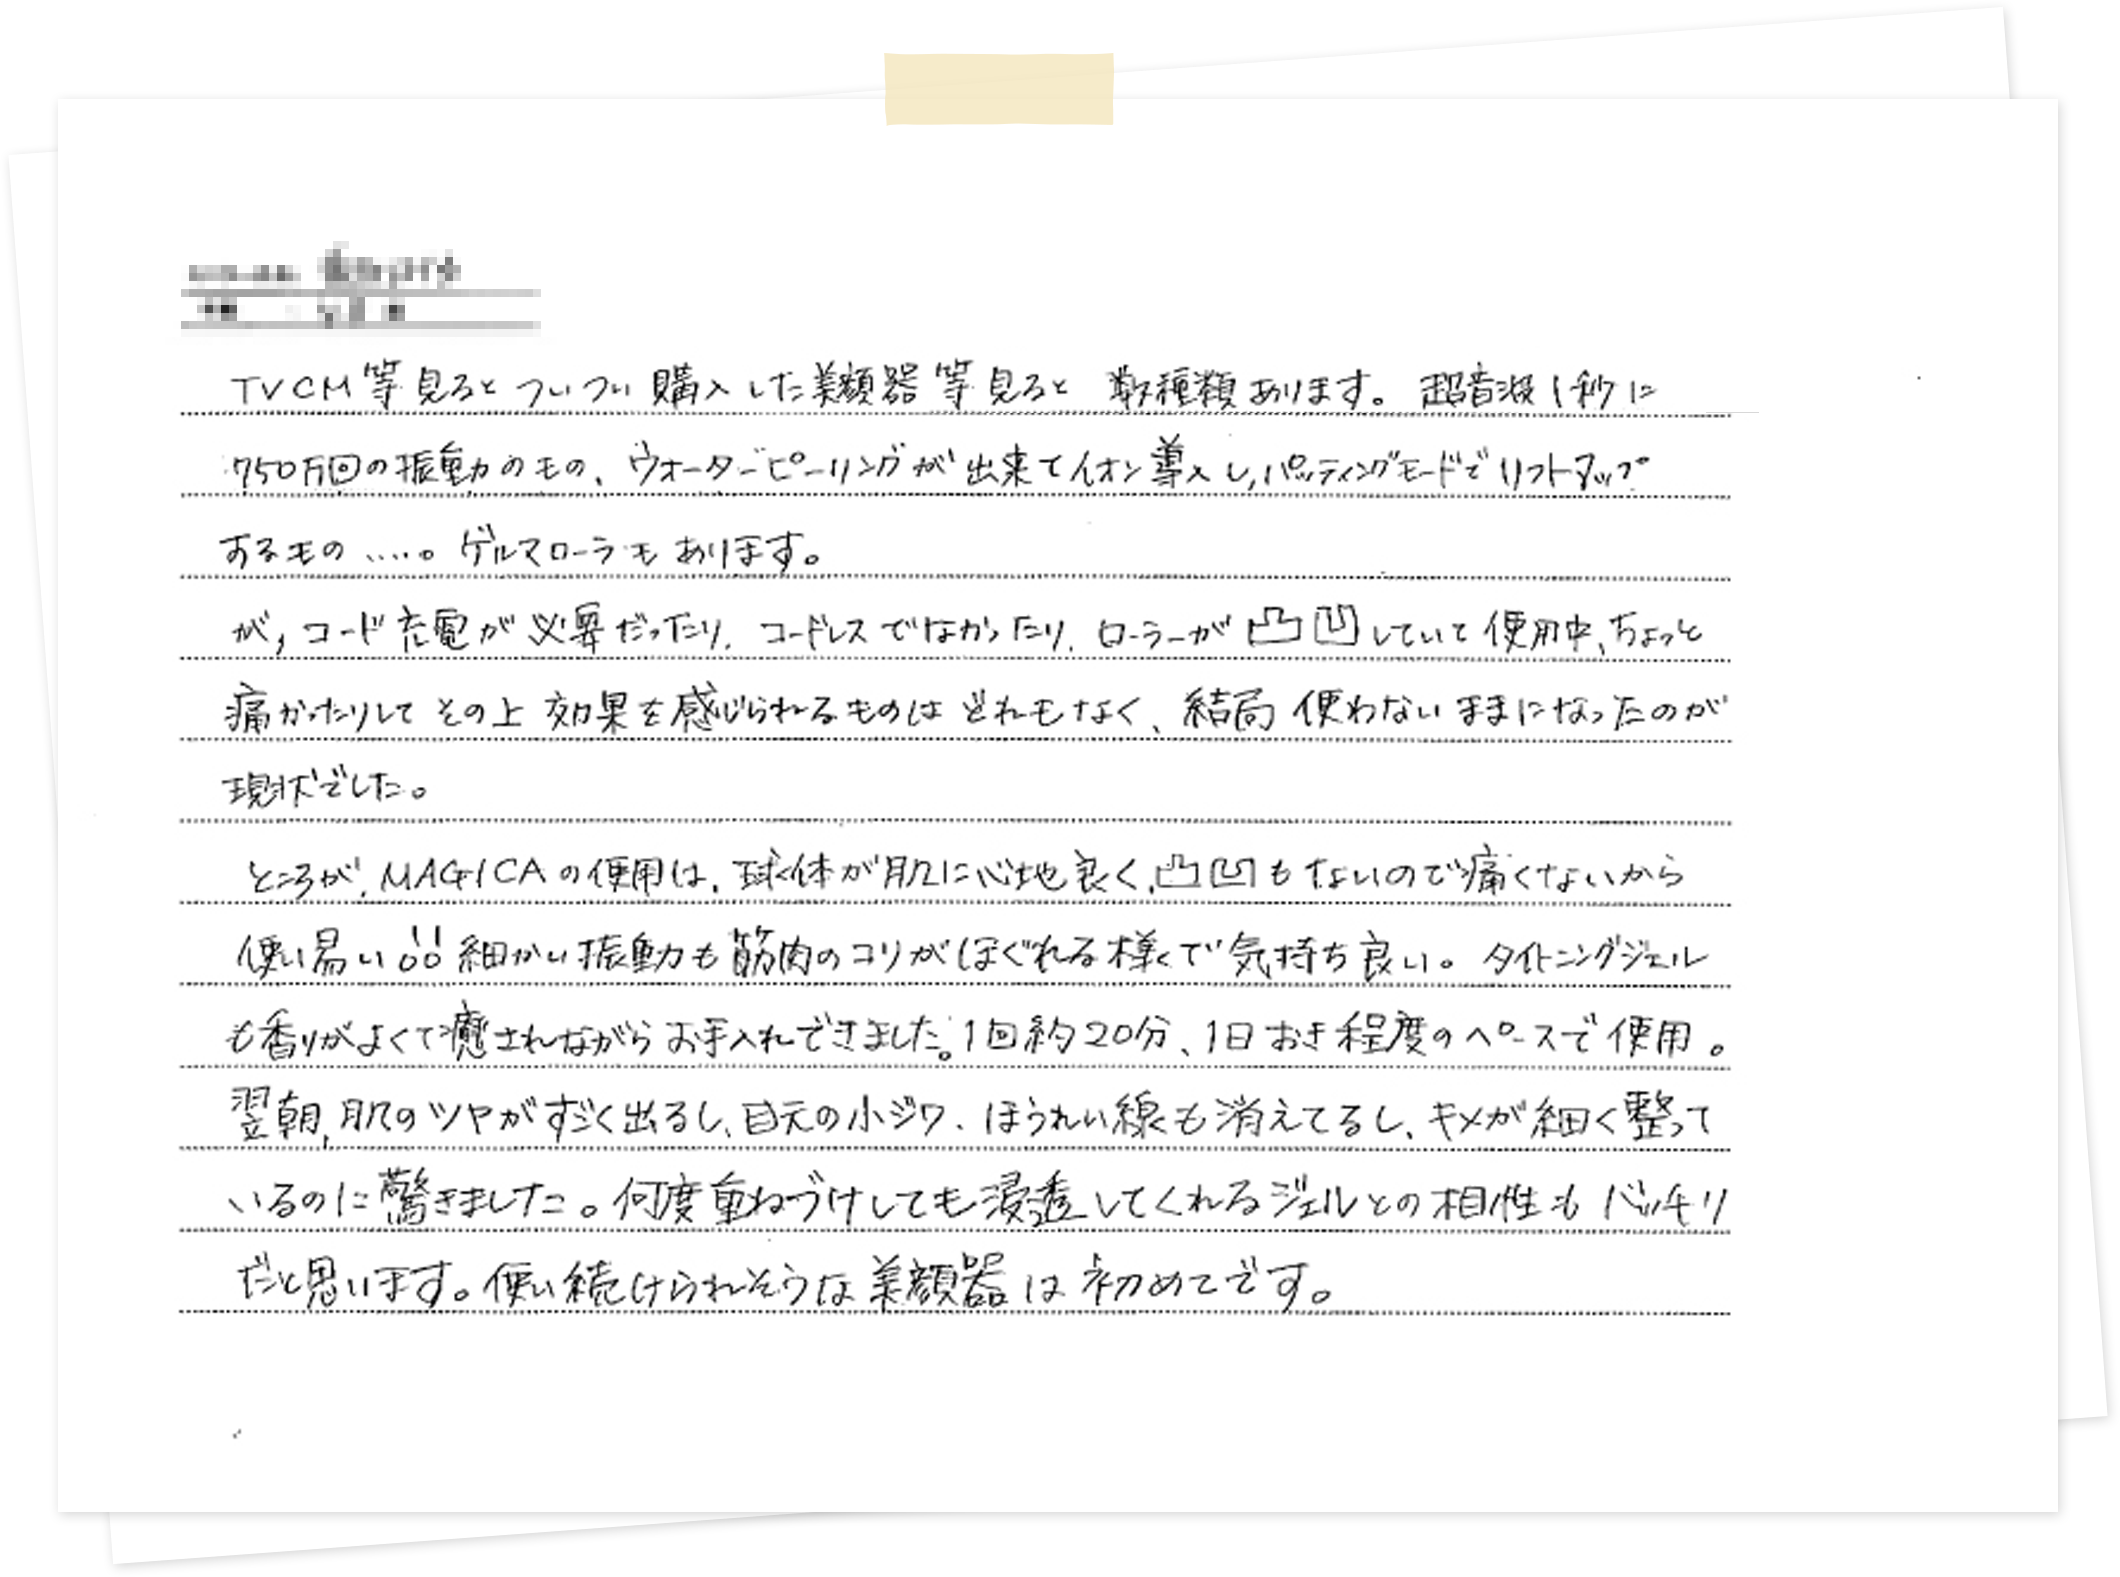 TVCM等見るとついつい購入した美顔器等見ると 数種類あります。超音波1秒に
750万回の振動のもの、ウォーターピーリングが出来てイオン導入し,パッティングモードでリフトアップ
するもの ‥‥。ゲルマローラもあります。
が, コード充電が必要だったり、コードレスでなかったり、ローラーが凸凹していて使用中、ちょっと
痛かったりして その上 効果を感じられるものは どれもなく、結局 使わないままになったのが
現状でした。
ところが、MAGICAの使用は、球体が肌に心地良く、凸凹もないので痛くないから
使い易い!! 細かい振動も筋肉のコリがほぐれる様で気持ち良い。タイトニングジェル
も香りがよくて癒されながらお手入れできました。1回約20分、1日おき程度のペースで使用。
翌朝,肌のツヤがすごく出るし、目元の小ジワ、ほうれい線も消えてるし、キメが細く整って
いるのに驚きました。何度重ねづけしても浸透してくれるジェルとの相性もバッチリ
だと思います。使い続けられそうな美顔器は初めてです。